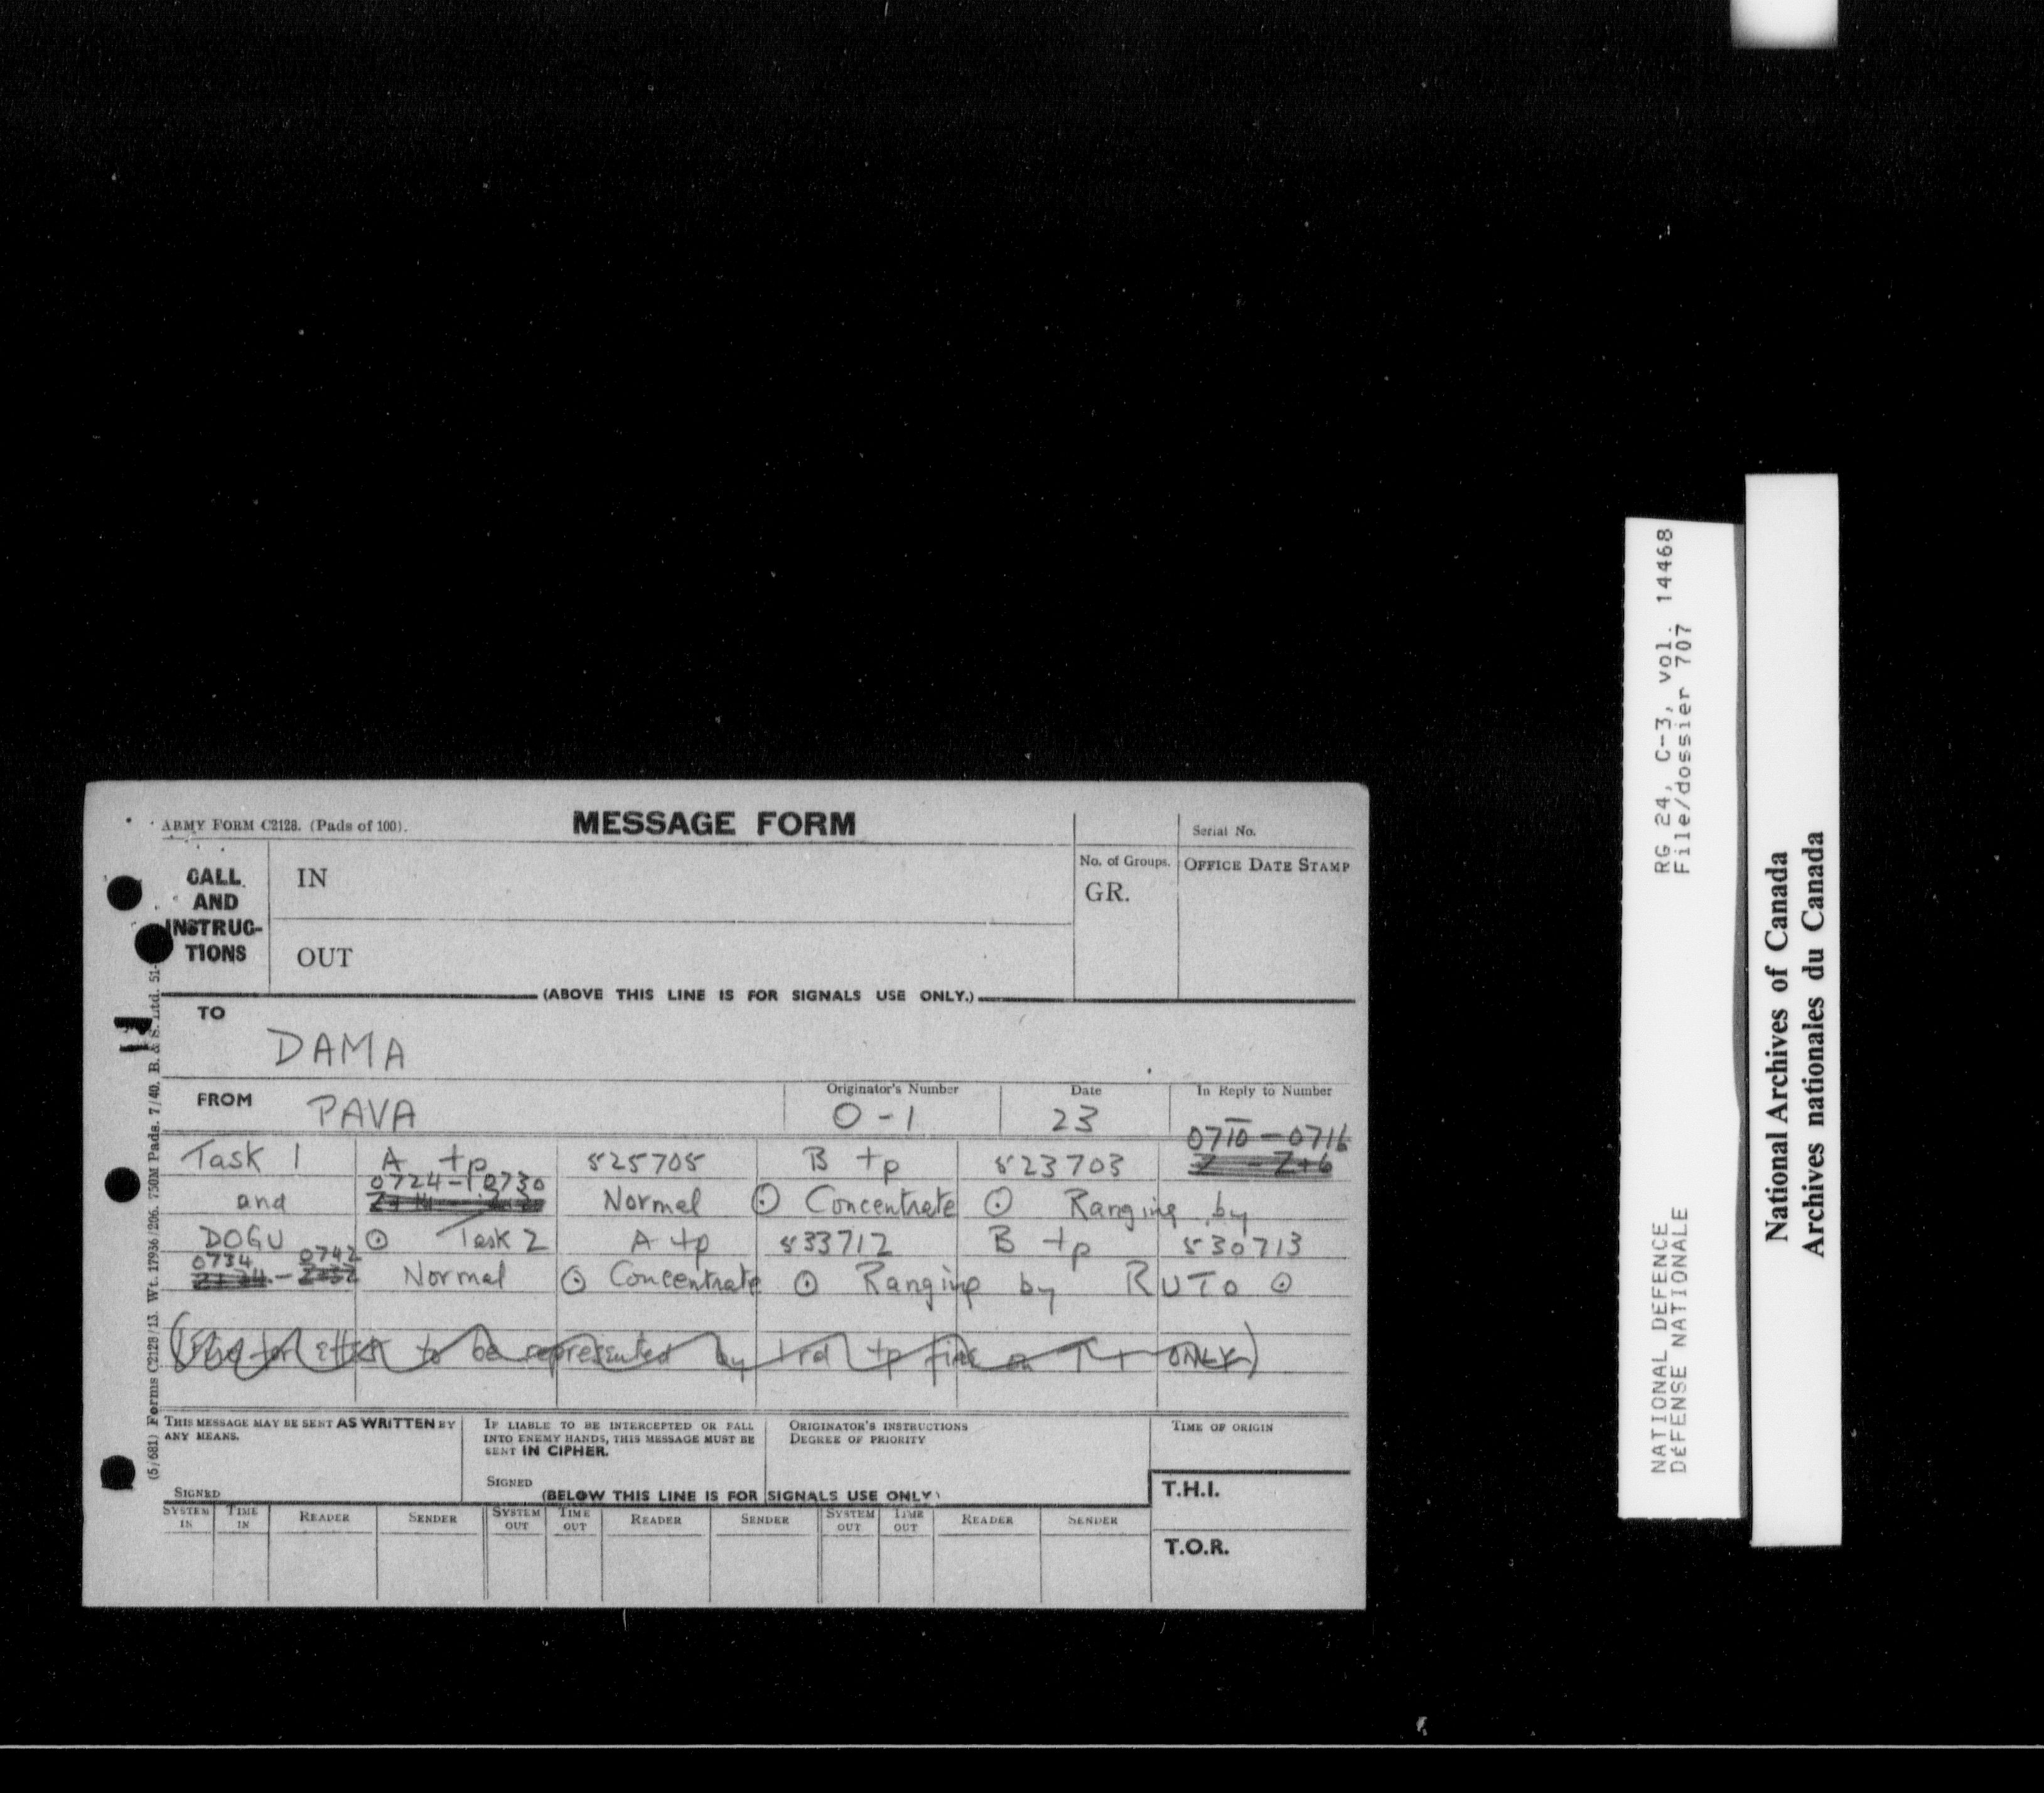 ARMY FORM C2128. (Pads of 100).
MESSAGE FORM
Serial No.
CALL AND INSTRUC-TIONS
IN
No. of Groups.
GR.
OFFICE DATE STAMP
OUT
(ABOVE THIS LINE IS FOR SIGNALS USE ONLY.)
TO
DAMA
FROM
PAVA
Originator's Number
O-1
Date
23
In Reply to Number
0710 - 0716
Task 1 A tp 525705 B tp 523703 Z - Z+6
0724 - 0730
and Normal ⊙ Concentrate ⊙ Ranging by
DOGU ⊙ Task 2 A tp 533712 B tp 530713
0734 0742
Normal ⊙ Concentrate ⊙ Ranging by RUTO ⊙
(Fire for effect to be represented by 1 rd tp fire ONLY)
THIS MESSAGE MAY BE SENT AS WRITTEN BY ANY MEANS.
SIGNED
IF LIABLE TO BE INTERCEPTED OR FALL INTO ENEMY HANDS, THIS MESSAGE MUST BE SENT IN CIPHER.
SIGNED
ORIGINATOR'S INSTRUCTIONS
DEGREE OF PRIORITY
TIME OF ORIGIN
(BELOW THIS LINE IS FOR SIGNALS USE ONLY)
T.H.I.
SYSTEM IN TIME IN READER SENDER SYSTEM OUT TIME OUT READER SENDER SYSTEM OUT TIME OUT READER SENDER
T.O.R.
(5/681) Forms C2128/13. Wt. 17936/206. 750M Pads. 7/40. B. & S. Ltd. 51-
RG 24, C-3, vol. 14468
File/dossier 707
NATIONAL DEFENCE
DéFENSE NATIONALE
National Archives of Canada
Archives nationales du Canada